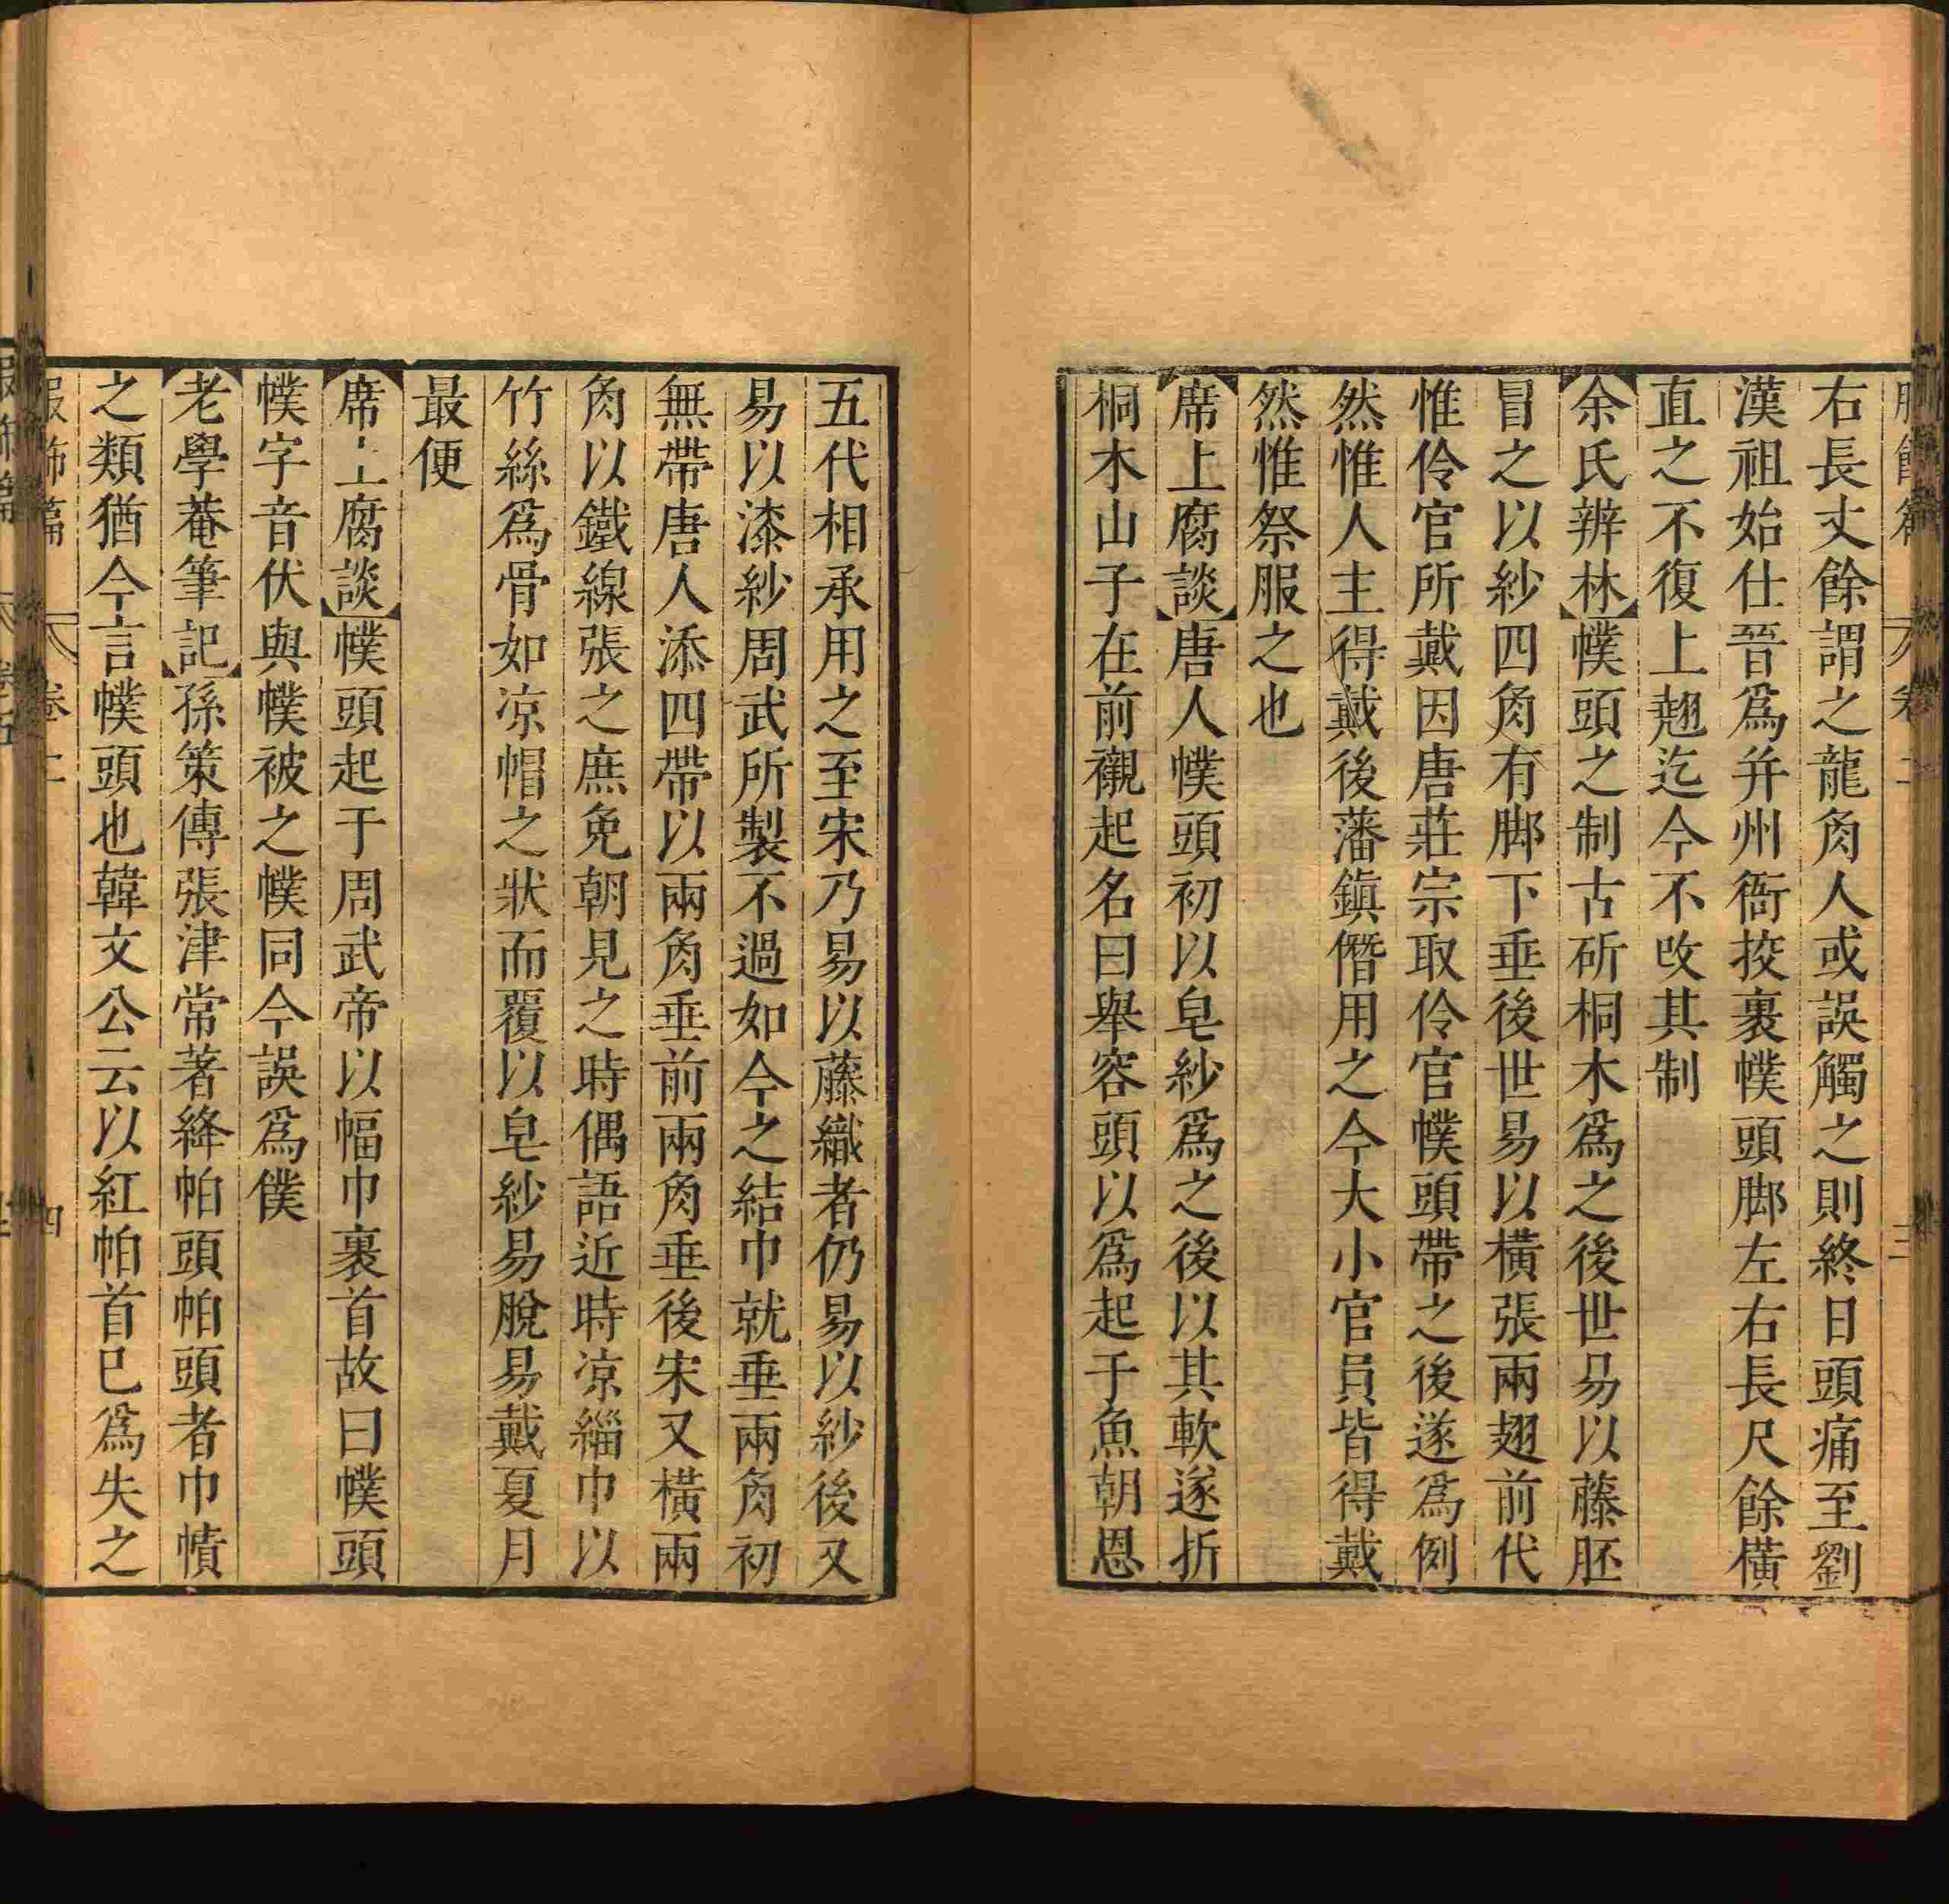 右長丈餘謂之龍角人或誤觸之則終日頭痛至劉
漢祖始仕晉爲并州衙挍裹幞頭脚左右長尺餘橫
直之不復上翹迄今不改其制
余氏辨林幞頭之制古斫桐木爲之後世易以藤胚
冒之以紗四角有脚下垂後世易以橫張兩翅前代
惟伶官所戴因唐莊宗取伶官幞頭帶之後遂爲例
然惟人主得戴後藩鎮僭用之今大小官員皆得戴
然惟祭服之也
席上腐談唐人幞頭初以皂紗爲之後以其軟遂折
桐木山子在前襯起名曰舉容頭以爲起于魚朝恩
五代相承用之至宋乃易以藤織者仍易以紗後又
易以漆紗周武所製不過如今之結巾就垂兩角初
無帶唐人添四帶以兩角垂前兩角垂後宋又橫兩
角以鐵線張之庶免朝見之時偶語近時凉緇巾以
竹絲爲骨如凉帽之狀而覆以皂紗易脫易戴夏月
最便
席上腐談幞頭起于周武帝以幅巾裹首故曰幞頭
幞字音伏與幞被之幞同今誤爲僕
老學菴筆記孫策傳張津常著絳帕頭帕頭者巾幘
之類猶今言幞頭也韓文公云以紅帕首已爲失之